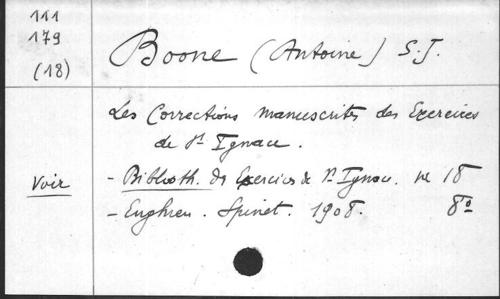 111
179
(18)
Boone (Antoine) S.J.
Les Corrections manuscrites des Exercices
de St Ignace.
Voir
- Biblioth. des Exercices de St Ignace. no 18
- Enghien. Spinet. 1908. 8o